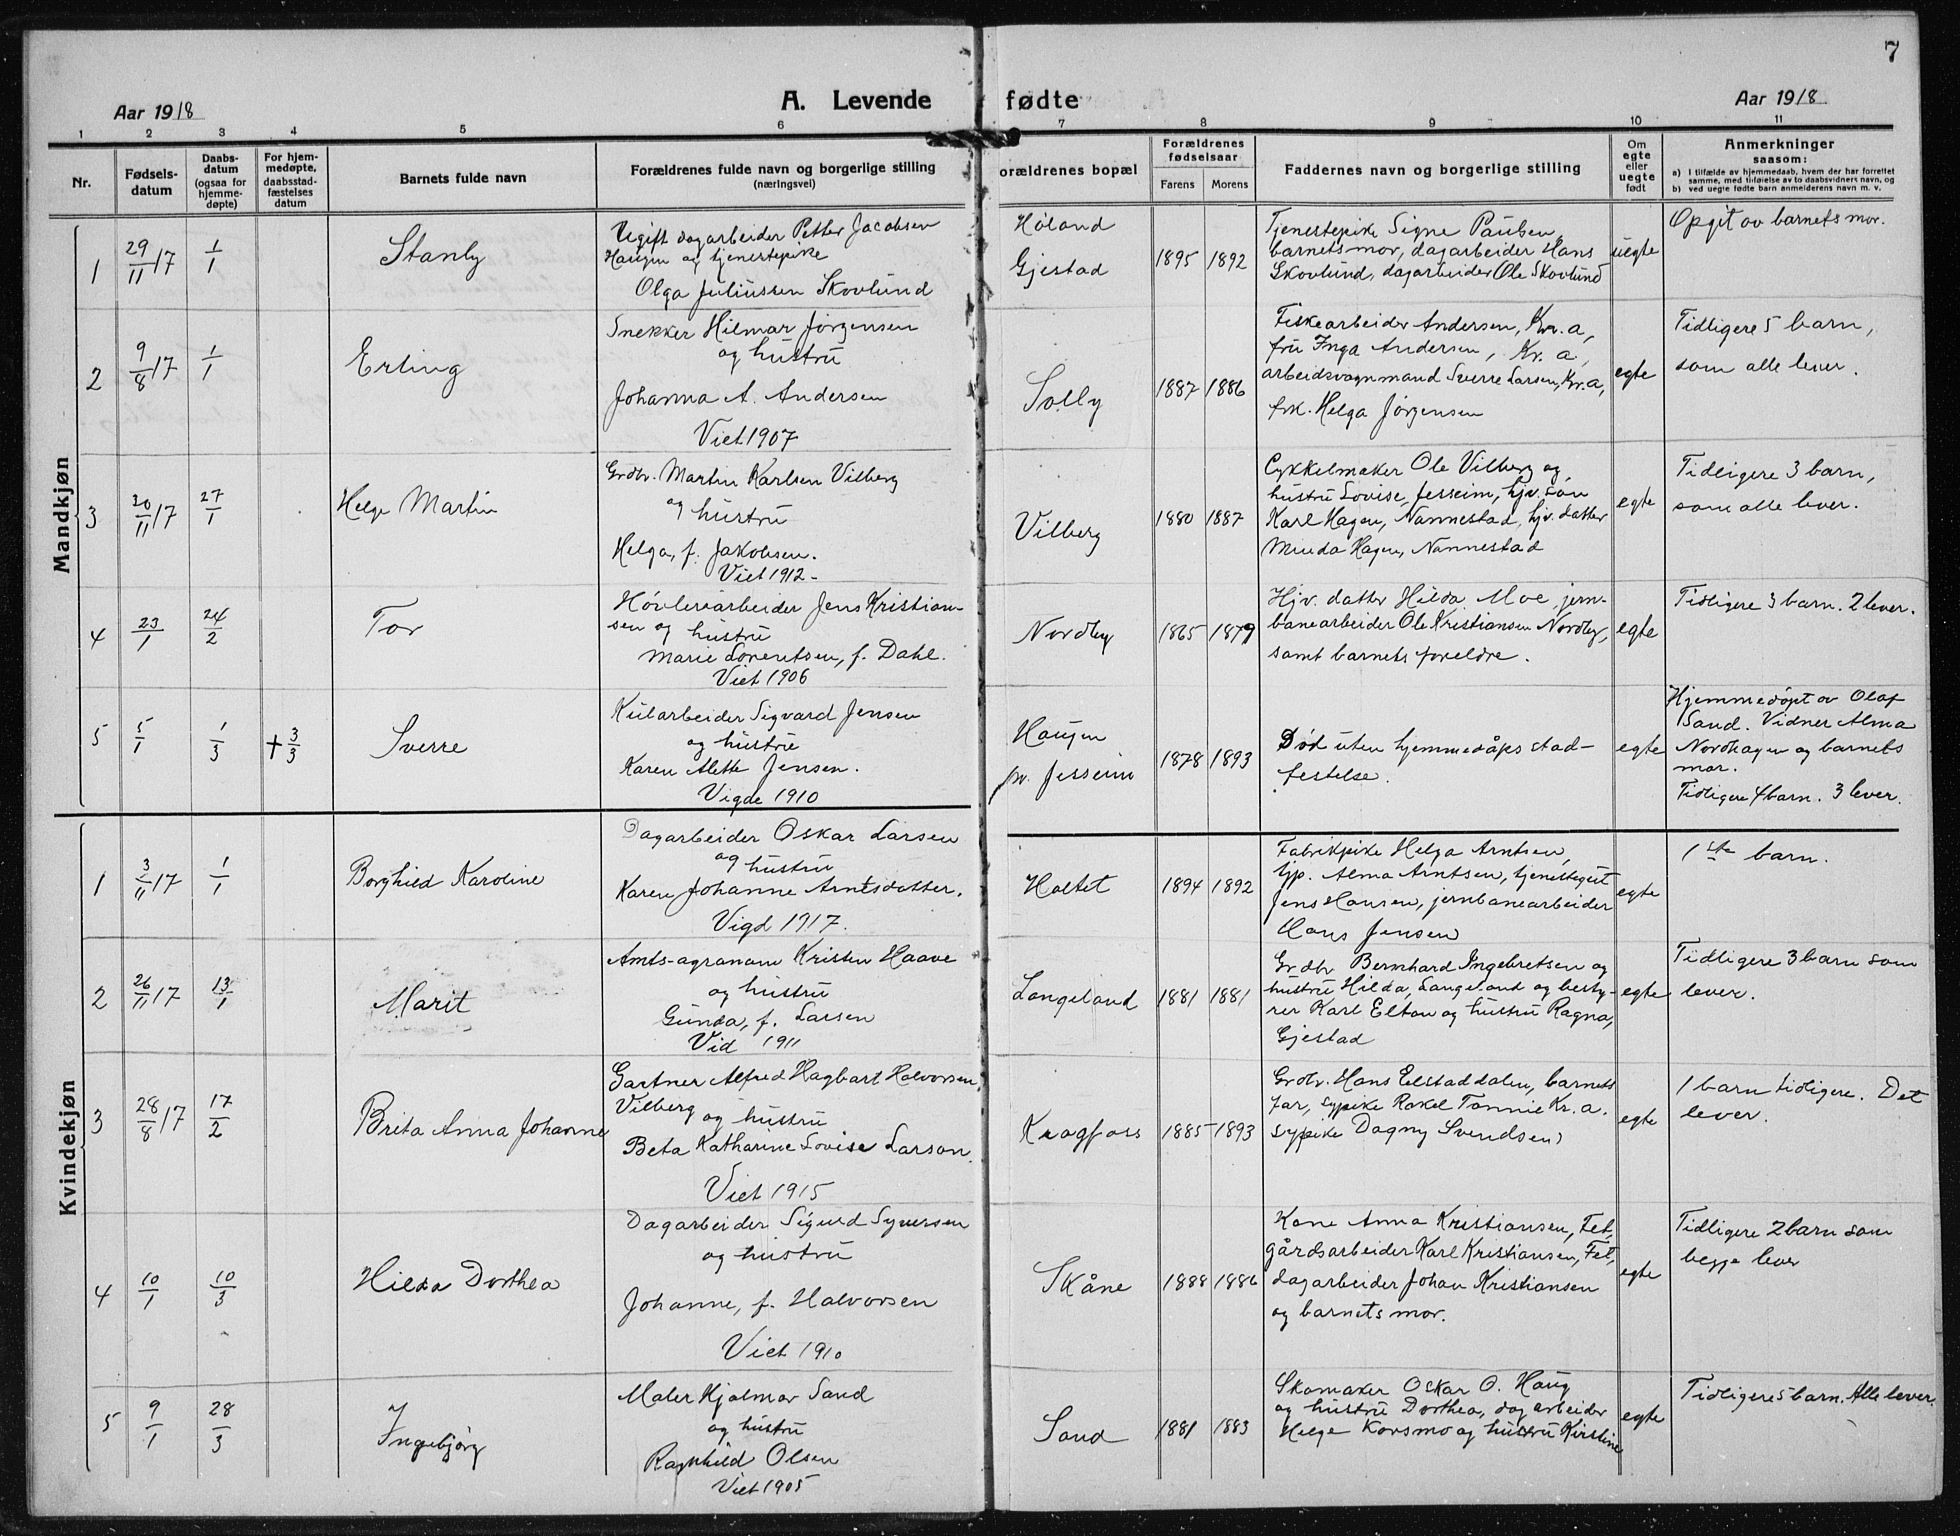 7
Aar 1918
A. Levende fødte
Aar 1918
1 2 3 4 5 6 7 8 9 10 11
Nr.
Fødsels-
datum
Daabs-
datum
(ogsaa for
hjemme-
døpte)
For hjem-
medøpte,
daabsstad-
fæstelses
datum
Barnets fulde navn
Forældrenes fulde navn og borgerlige stilling
(næringsvei)
orældrenes bopæl
Forældrenes
fødselsaar
Farens Morens
Faddernes navn og borgerlige stilling
Om
egte
eller
uegte
født
Anmerkninger
saasom:
a) I tilfælde av hjemmedaab, hvem der har forrettet
samme, med tilføielse av to daabsvidners navn, og
b) ved uegte fødte barn anmelderens navn m. v.
Mandkjøn
1
29/11 17
1/1
Stanly
Ugift dagarbeider Petter Jacobsen
Haugen og tjenestepike
Olga Juliussen Skovlund
Høland
Gjestad
1895 1892
Tjenestepike Signe Paulsen,
barnets mor, dagarbeider Hans
Skovlund, dagarbeider Ole Skovlund
uegte
Opgit av barnets mor.
2
9/8 17
1/1
Erling
Snekker Hilmar Jørgensen
og hustru
Johanna A. Andersen
Viet 1907
Solly
1887 1886
Fiskearbeider Andersen, Kr.a,
fru Inga Andersen, Kr. a,
arbeidsvognmand Sverre Larsen, Kr.a,
frk. Helga Jørgensen
egte
Tidligere 5 barn,
som alle lever.
3
30/11 17
27/1
Helge Martin
Grdbr. Martin Karlsen Vilberg
og hustru
Helga, f. Jakobsen.
Viet 1912-
Vilberg
1880 1887
Cykkelmaker Ole Vilberg og
hustru Lovise, Jesseim, hjv. søn
Karl Hagen, Nannestad, hjv. datter
Minda Hagen, Nannestad
egte
Tidligere 3 barn,
som alle lever.
4
23/1
24/2
Tor
Høvleriarbeider Jens Kristian-
sen og hustru
Marie Lorentsen, f. Dahl.
Viet 1906
Nordby
1865 1879
Hjv. datter Hilda Moe, jern-
banearbeider Ole Kristiansen Nordby,
samt barnets foreldre.
egte
Tidligere 3 barn. 2 lever.
5
5/1
1/3
+ 3/3
Sverre
Kularbeider Sigvard Jensen
og hustru
Karen Alette Jensen.
Vigde 1910
Haugen
pr. Jesseim
1878 1893
Død uten hjemmedåps stad-
festelse.
egte
Hjemmedøpt av Olaf
Sand. Vidner Alma
Nordhagen og barnets
mor.
Tidligere 4 barn. 3 lever.
Kvindekjøn
1
3/11 17
1/1
Borghild Karoline
Dagarbeider Oskar Larsen
og hustru
Karen Johanne Arntsdatter.
Vigd 1917.
Holtet
1894 1892
Fabrikpike Helga Arntsen,
tjp. Alma Arntsen, tjenestegut
Jens Hansen, jernbanearbeider
Hans Jensen
egte
1ste barn.
2
26/11 17
13/1
Marit
Amts-agronom Kristen Haave
og hustru
Gunda, f. Larsen
Vid 1911
Langeland
1881 1881
Grdbr Bernhard Ingebretsen og
hustru Hilda, Langeland og besty-
rer Karl Elton og hustru Ragna,
Gjestad
egte
Tidligere 3 barn som
lever.
3
28/8 17
17/2
Brita Anna Johanne
Gartner Alfred Hagbart Halvorsen
Vilberg og hustru
Beta Katharine Lovise Larson.
Viet 1915
Krogfoss
1885 1893
Grdbr. Hans Elstaddalen, barnets
far, sypike Rakel Tonnie Kr. a.
sypike Dagny Svendsen
egte
1 barn tidligere. Det
lever.
4
10/1
10/3
Hilda Dorthea
Dagarbeider Sigurd Syversen
og hustru
Johanne, f. Halvorsen
Viet 1910
Skåne
1888 1886
Kone Anna Kristiansen, Fet,
gårdsarbeider Karl Kristiansen, Fet,
dagarbeider Johan Kristiansen
og barnets mor.
egte
Tidligere 2 barn som
begge lever
5
9/1
28/3
Ingebjørg
Maler Hjalmar Sand
og hustru
Ragnhild Olsen
Viet 1905
Sand
1881 1883
Skomaker Oskar O. Haug
og hustru Dorthea, dagarbeider
Helge Korsmo og hustru Kirstine
egte
Tidligere 5 barn. Alle lever.